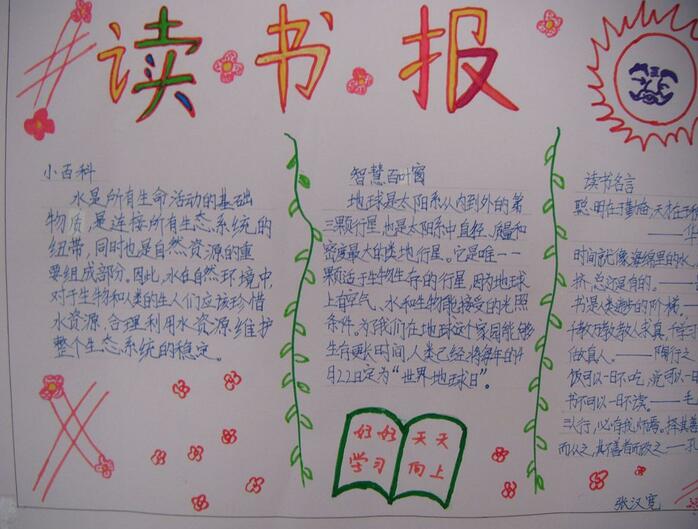 读书报
小百科
水是所有生命活动的基础
物质,是连接所有生态系统的
纽带,同时也是自然资源的重
要组成部分。因此,水在自然环境中,
对于生物和人类的生人们应该珍惜
水资源,合理利用水资源,维护
整个生态系统的稳定。
智慧百叶窗
地球是太阳系从内到外的第
三颗行星,也是太阳系中直径、质量和
密度最大的类地行星。它是唯一一
颗适于生物生存的行星,因为地球
上有空气、水和生物能接受的光照
条件。为我们在地球这个家园能够
生存更长时间,人类已经将每年的4
月22日定为“世界地球日”。
好好
学习
天天
向上
读书名言
聪明在于勤奋,天才在于积
——华
时间就像海绵里的水,
挤,总还是有的。——
书是人类进步的阶梯。
千教万教教人求真,千学
做真人。——陶行之
饭可以一日不吃,觉可以一日
书不可以一日不读。——毛
三人行,必有我师焉。择其善
而从之,其不善者而改之——孔
张汉宽